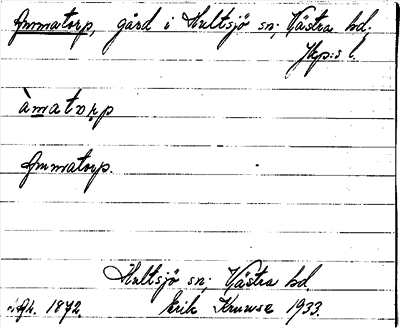 Ammatorp, gård i Hultsjö sn; Västra hd.
Jkp:s l.
àmatorp
Ammatorp.
Hultsjö sn; Västra hd.
1872. Erik Kruuse 1933.